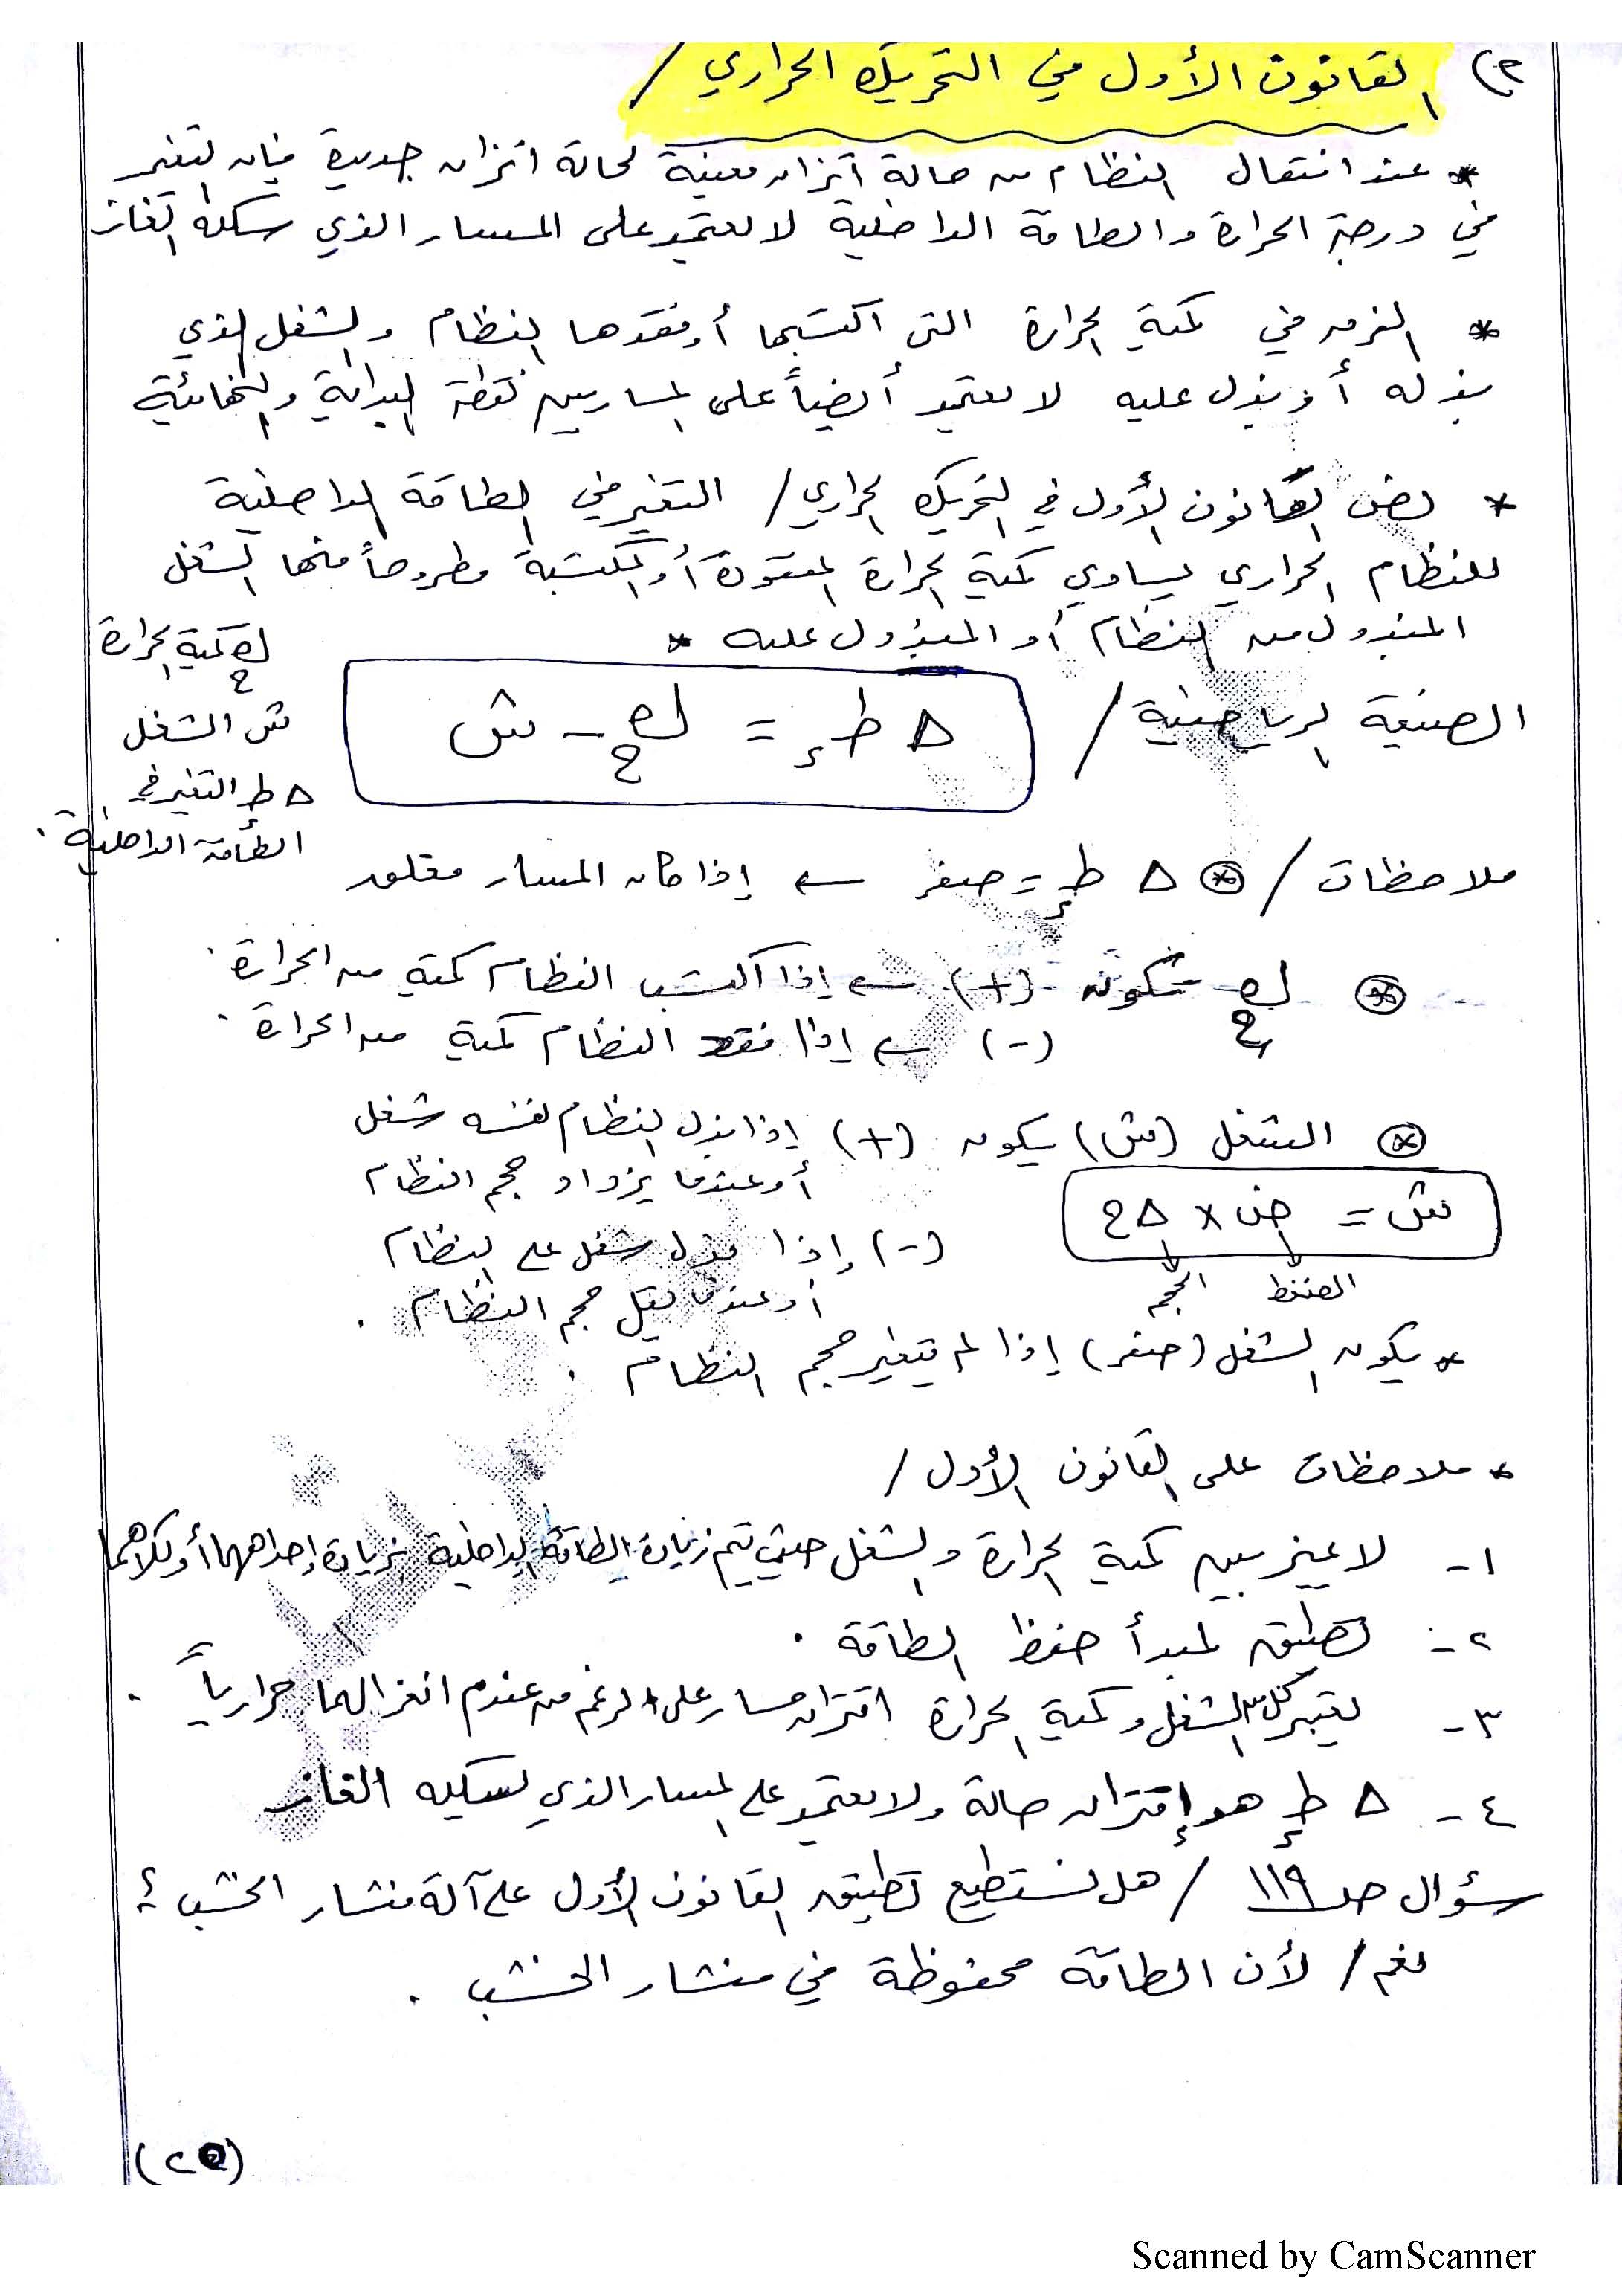 ٢) القانون الأول في التحريك الحراري /
* عند انتقال النظام من حالة اتزان معينة لحالة اتزان جديدة فإن التغير
في درجة الحرارة والطاقة الداخلية لا يعتمد على المسار الذي سلكه الغاز
* الفرق في كمية الحرارة التي اكتسبها أو فقدها النظام والشغل الذي
بذله أو بذل عليه لا يعتمد أيضاً على المسار بين نقطة البداية والنهاية
* نص القانون الأول في التحريك الحراري / التغير في الطاقة الداخلية
للنظام الحراري يساوي كمية الحرارة المفقودة أو المكتسبة مطروحاً منها الشغل
المبذول من النظام أو المبذول عليه *
الصيغة الرياضية / Δ طد = كمح - ش
كمح كمية الحرارة
ش الشغل
Δ طد التغير في
الطاقة الداخلية .
ملاحظات / * Δ طد = صفر ← إذا كان المسار مغلق
* كمح تكون (+) ← إذا اكتسب النظام كمية من الحرارة .
(-) ← إذا فقد النظام كمية من الحرارة .
* الشغل (ش) يكون (+) إذا بذل النظام نفسه شغل
أو عندما يزداد حجم النظام
ش = ض × Δ ح
الضغط الحجم
(-) إذا بذل شغل على النظام
أو عندما يقل حجم النظام .
* يكون الشغل (صفر) إذا لم يتغير حجم النظام .
* ملاحظات على القانون الأول /
١- لا يميز بين كمية الحرارة والشغل حيث يتم زيادة الطاقة الداخلية بزيادة إحداهما أو كلاهما
٢- تطبيق لمبدأ حفظ الطاقة .
٣- يعتبر كل من الشغل وكمية الحرارة اقتران مسار على الرغم من عدم انعزالهما حرارياً .
٤- Δ طد هو إقتران حالة ولا يعتمد على المسار الذي يسلكه الغاز
سؤال صـ ١١٩ / هل نستطيع تطبيق القانون الأول على آلة منشار الخشب ؟
نعم / لأن الطاقة محفوظة في منشار الخشب .
Scanned by CamScanner